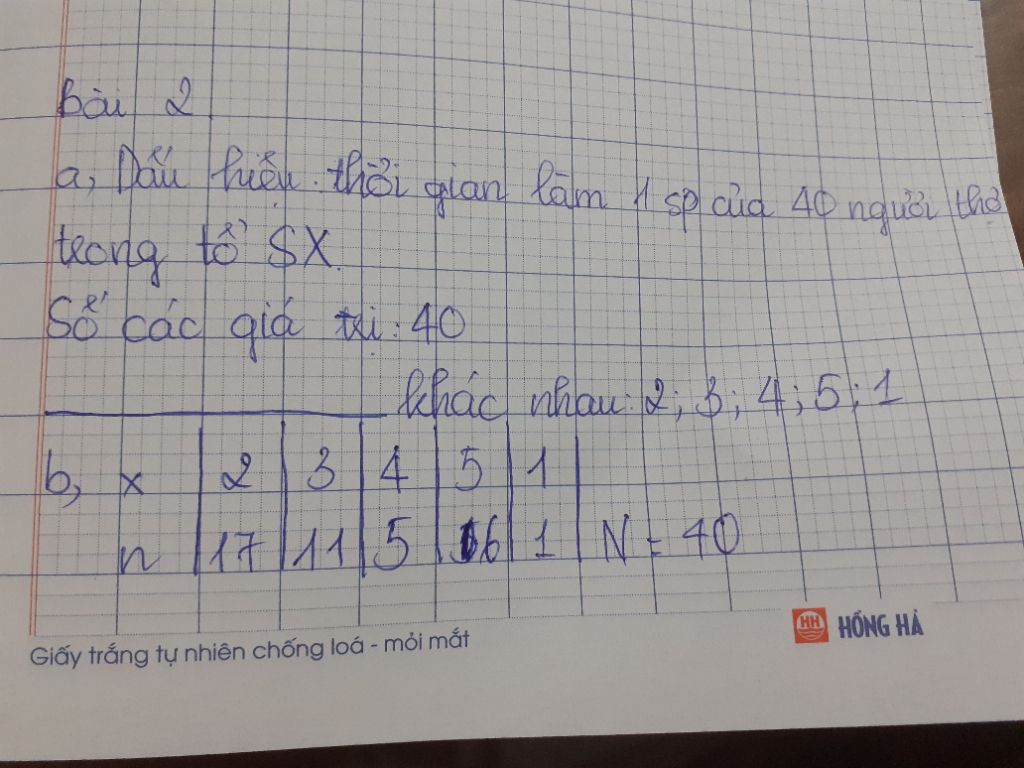 Bài 2
a, Dấu hiệu: thời gian làm 1 sp của 40 người thợ
trong tổ SX.
Số các giá trị: 40
khác nhau: 2; 3; 4; 5; 1
b, x 2 3 4 5 1
n 17 11 5 6 1 N = 40
Giấy trắng tự nhiên chống loá - mỏi mắt
HH HỒNG HÀ